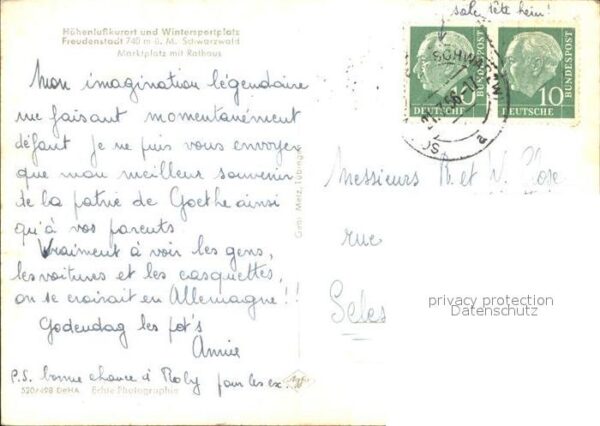 sale tête hein!
Höhenluftkurort und Wintersportplatz
Freudenstadt 740 m ü. M. Schwarzwald
Marktplatz mit Rathaus
Mon imagination légendaire
me faisant momentanément
défaut je ne puis vous envoyer
que mon meilleur souvenir
de la patrie de Goethe ainsi
qu'à vos parents.
Vraiment à voir les gens,
les voitures et les casquettes,
on se croirait en Allemagne!!
Godendag les pot's
Annie
P.S. bonne chance à Roly pour les ex.
520/498 Echte Photographie
Gebr. Metz, Tübingen
DEUTSCHE BUNDESPOST 10
DEUTSCHE BUNDESPOST 10
Messieurs R. et V. Close
rue
Seles
privacy protection
Datenschutz